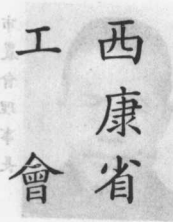 西康省
工會